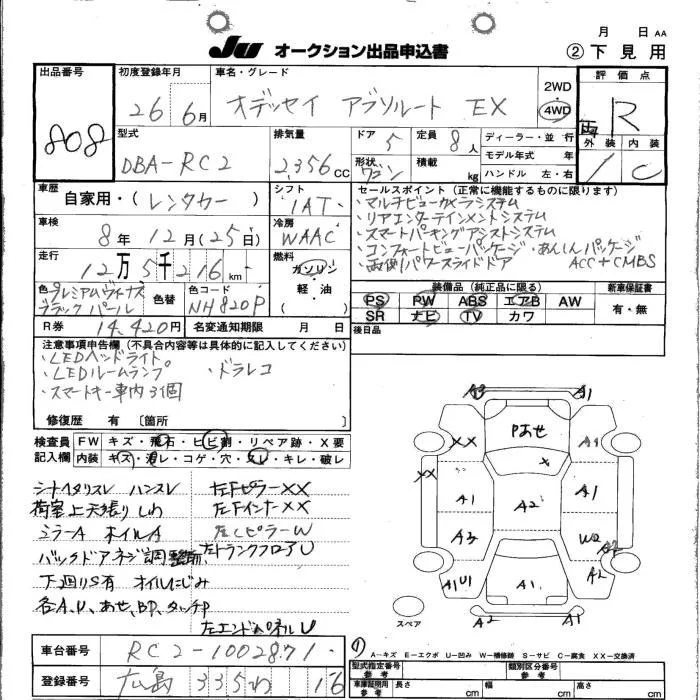 月 日 AA
JU オークション出品申込書 ② 下見用
出品番号 808
初度登録年月 26 6月
車名・グレード オデッセイ アブソルート EX
2WD 4WD
評価点 R
外装 内装 C
型式 DBA-RC2
排気量 2,356 CC
ドア 5
定員 8人
形状 ワゴン
積載 kg
ディーラー・並行
モデル年式 年
ハンドル 左・右
車歴 自家用・(レンタカー)
シフト IAT
セールスポイント(正常に機能するものに限ります)
・マルチビューカメラシステム
・リアエンターテインメントシステム
・スマートパーキングアシストシステム
・コンフォートビューパッケージ・あんしんパッケージ
・両側パワースライドドア ACC+CMBS
車検 8年 12月(25日)
冷房 WAAC
走行 12万5千216km
燃料 ガソリン 軽・油 ( )
色 プレミアムヴィーナス ブラックパール
色替
色コード NH820P
装備品(純正品に限る)
PS PW ABS エアB AW
SR ナビ TV カワ
新車保証書 有・無
R券 14,420円 名変通知期限 月 日
後日品
注意事項申告欄(不具合等は具体的に記入してください)
・LEDヘッドライト
・LEDルームランプ ・ドラレコ
・スマートキー車内3個
修復歴 有 〔箇所 〕
検査員 FW キズ・飛石・ヒビ割・リペア跡・X要
記入欄 内装 キズ・汚レ・コゲ・穴・スレ・キレ・破レ
シートヘタリスレ ハンスレ 左FピラーXX
荷室上天張りしわ 左FインナXX
ミラーA ホイルA 左CピラーW
バックドアネジ調整跡 左トランクフロアU
下廻りS有 オイルにじみ
各A,U,あせ,BP,タッチP
左エンドパネルU
A3 A1
XX Pあせ A1
XX
A1 A2 A1
A3 W2
A1U1 A1 A2
A2 A1
スペア
A-キズ E-エクボ U-凹み W-補修跡 S-サビ C-腐食 XX-交換済
車台番号 RC2-1002871
登録番号 広島 335 わ 16
型式指定番号 参考
類別区分番号 参考
車庫証明用 参考 長さ cm 幅 cm 高さ cm